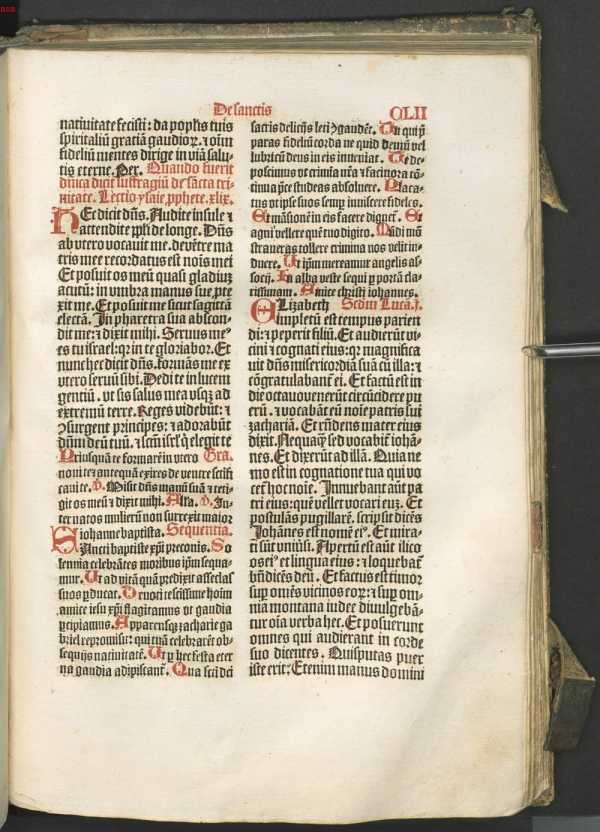 De sanctis
CLII
natiuitate fecisti: da popl̄is tuis
spiritaliū gratiā gaudioꝝ. ⁊ oīm
fideliū mentes dirige in viā salu
tis eterne. Per. Quando fuerit
dn̄ica dicit suffragiū de sc̄ta tri
nitate. Lectio ysaie ꝓphete. xlix.
Hec dicit dn̄s. Audite insule ⁊
attendite pp̄li de longe. Dn̄s
ab vtero vocauit me. de vētre ma
tris mee recordatus est nois mei
Et posuit os meū quasi gladiuꝫ
acutū: in vmbra manus sue ꝓte
xit me. Et posuit me sicut sagittā
electā. In pharetra sua abscon
dit me: ⁊ dixit mihi. Seruus meꝰ
es tu israel: qr in te gloriabor. Et
nunc hec dicit dn̄s. formās me ex
vtero seruū sibi. Dedi te in lucem
gentiū. vt sis salus mea vsqꝫ ad
extremū terre. Reges videbūt: ⁊
ꝯsurgent principes: ⁊ adorabūt
dn̄m deū tuū. ⁊ scm̄ isrl̄ q̄ elegit te
Priusquā te formarē in vtero Gra.
noui te ⁊ antequā exires de ventre sctifi
caui te. v̓. Misit dn̄s manū suā ⁊ teti
git os meū ⁊ dixit mihi. Alla. v̓. In
ter natos mulierū non surrexit maior
iohanne baptista. Sequentia.
Sancti baptiste xp̄i preconis. So
lennia celebrātes moribus ip̄m sequa
mur. Ut ad viā quā predixit asseclas
suos ꝑducat.
amice iesu xp̄i flagitamus vt gaudia
ꝑcipiamus. Apparensqꝫ zacharie ga
briel repromisit: qui tuā celebrarēt ob
sequijs natiuitatē. Ut ꝑ hec festa eter
na gaudia adipiscant̄. Qua sc̄i dei
sacris delicijs leti ꝯgaudēt.
paras fideliū corda ne quid deuiū vel
lubricū deus in eis inueniat. Te de
poscimus vt crimīa nr̄a ⁊ facinora cō
tinua p̄ce studeas absoluere. Placa
tus vt ipse suos semꝑ inuisere fideles.
Et māsionē in eis facere dignet̄. Et
agni vellere quē tuo digito. Mūdi mō
straueras tollere crimina nos velit in
duere. Ut ip̄m mereamur angelis as
socij. In alba veste sequi ꝑ portā cla
rissimam. Amice christi iohannes.
Elizabeth Scdm̄ Lucā. j.
impletū est tempus parien
di: ⁊ peperit filiū. Et audierūt vi
cini ⁊ cognati eius: qꝛ magnifica
uit dn̄s misericordiā suā cū illa: ⁊
cōgratulabant̄ ei. Et factū est in
die octauo venerūt circūcidere pu
erū. ⁊ vocabāt eū noīe patris sui
zachariā. Et rn̄dens mater eius
dixit. Nequaqꝫ sed vocabit̄ iohā
nes. Et dixerūt ad illā. Quia ne
mo est in cognatione tua qui vo
cet̄ hoc noīe. Innuebant aūt pa
tri eius: quē vellet vocari euꝫ. Et
postulās pugillarē. scripsit dicēs
Johānes est nomē eiꝰ. Et mira
ti sūt vniūsi. Apertū est aūt ilico
os eiꝰ et lingua eius: ⁊ loquebat̄
bn̄dicēs deū. Et factus est timor
suꝑ omēs vicinos eoꝝ: ⁊ suꝑ om
nia montana iudee diuulgebā
tur oīa verba hec. Et posuerunt
omnes qui audierant in corde
suo dicentes. Quis putas puer
iste erit: Etenim manus domini